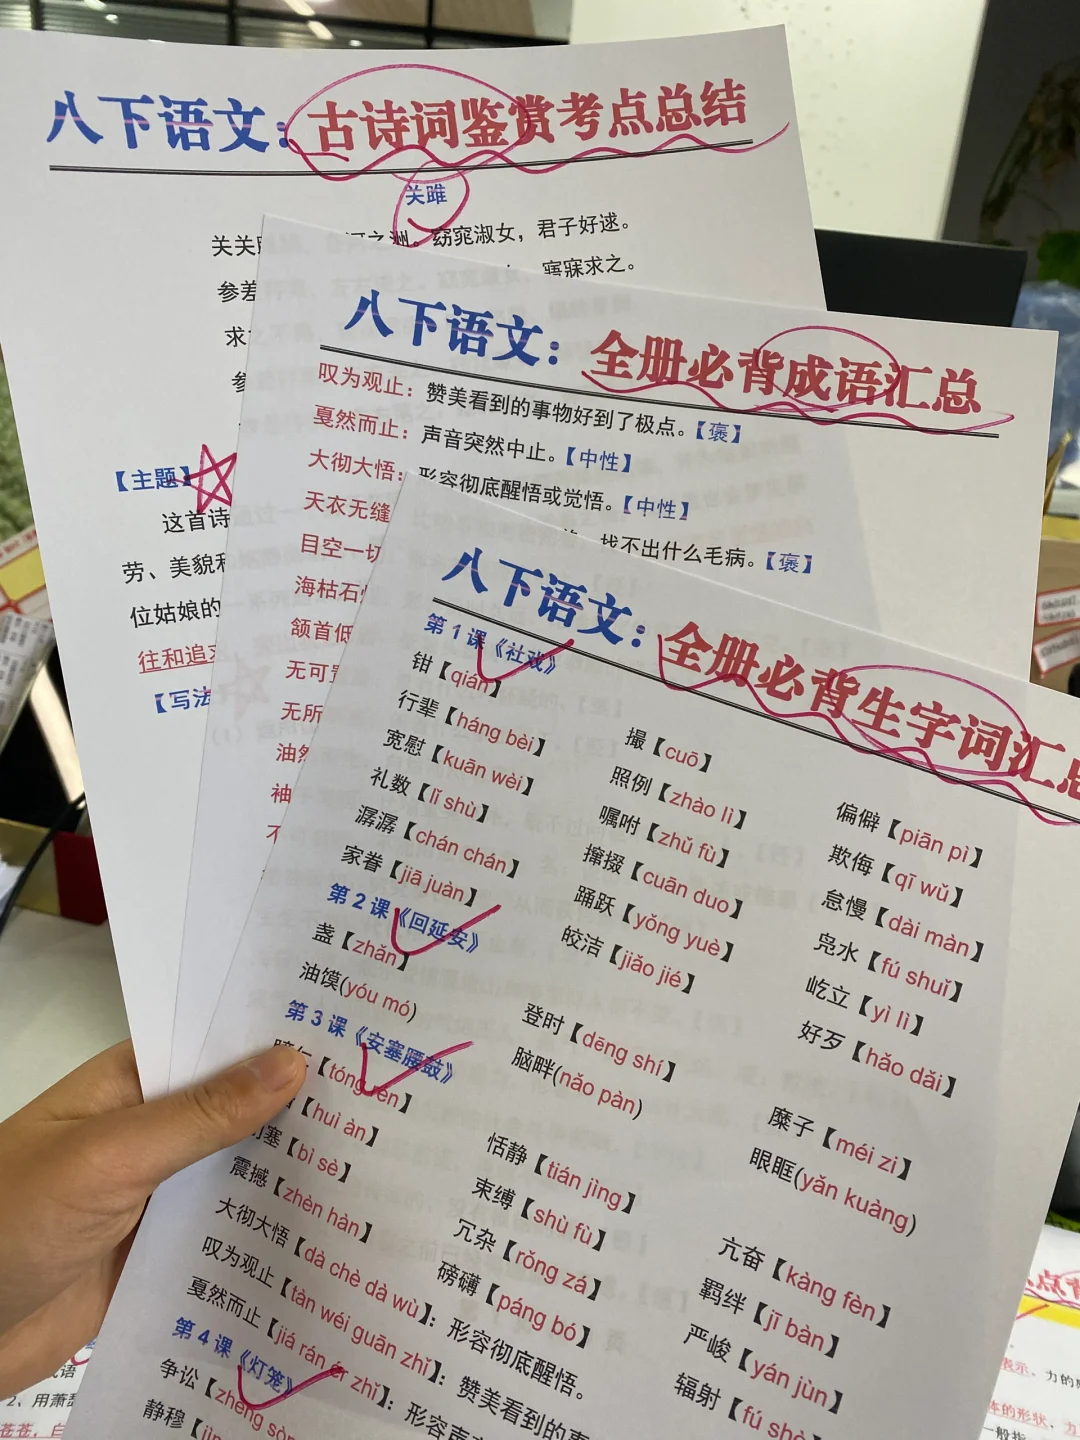 八下语文：古诗词鉴赏考点总结
关雎
关关 河之洲。窈窕淑女，君子好逑。
参差 寤寐求之。
求
参
【主题】
这首诗
劳、美貌和
位姑娘的
往和追求
【写法
八下语文：全册必背成语汇总
叹为观止：赞美看到的事物好到了极点。【褒】
戛然而止：声音突然中止。【中性】
大彻大悟：形容彻底醒悟或觉悟。【中性】
天衣无缝 找不出什么毛病。【褒】
目空一切
海枯石烂
颔首低
无可置
无所
油然
袖
不
八下语文：全册必背生字词汇总
第 1 课《社戏》
钳【qián】 撮【cuō】 偏僻【piān pì】
行辈【háng bèi】 照例【zhào lì】 欺侮【qī wǔ】
宽慰【kuān wèi】 嘱咐【zhǔ fù】 怠慢【dài màn】
礼数【lǐ shù】 撺掇【cuān duo】 凫水【fú shuǐ】
潺潺【chán chán】 踊跃【yǒng yuè】 屹立【yì lì】
家眷【jiā juàn】 皎洁【jiǎo jié】 好歹【hǎo dǎi】
第 2 课《回延安》
盏【zhǎn】 登时【dēng shí】 糜子【méi zi】
油馍(yóu mó) 脑畔(nǎo pàn) 眼眶(yǎn kuàng)
第 3 课《安塞腰鼓》
【tóng rén】 恬静【tián jìng】 亢奋【kàng fèn】
【huì àn】 束缚【shù fù】 羁绊【jī bàn】
塞【bì sè】 冗杂【rǒng zá】 严峻【yán jùn】
震撼【zhèn hàn】 磅礴【páng bó】 辐射【fú shè
大彻大悟【dà chè dà wù】：形容彻底醒悟。
叹为观止【tàn wéi guān zhǐ】：赞美看到的事
戛然而止【jiá rán ér zhǐ】：形容声
第 4 课《灯笼》
争讼【zhēng sòn
静穆【jìn
成语
2、用萧瑟
苍苍，白
考点
表示、力的
体的形状、力
一般指